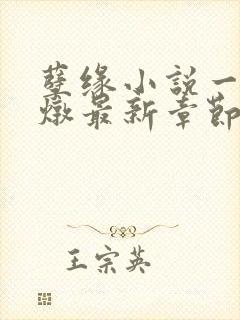 孽缘小説一
燉最新章節
王宗英